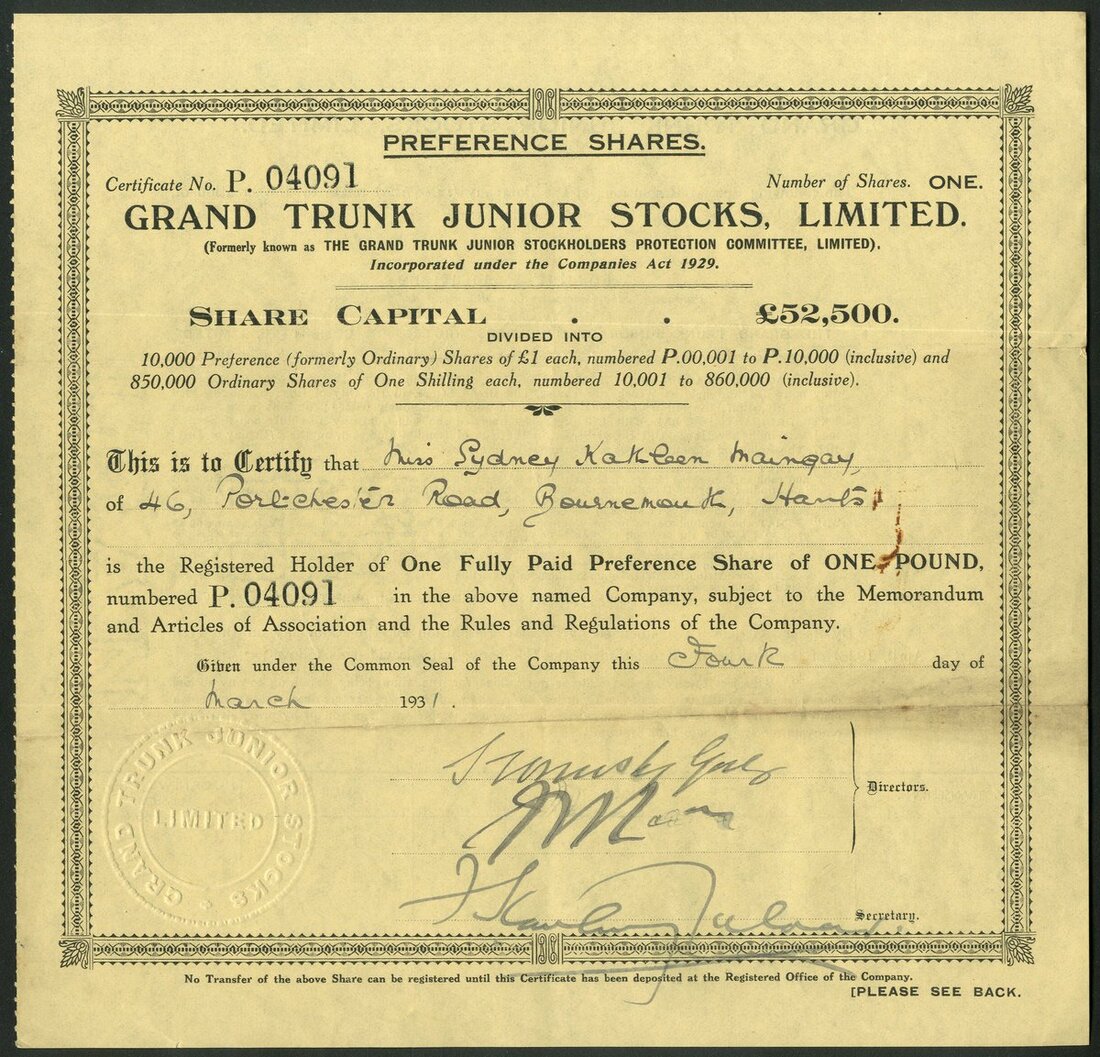 PREFERENCE SHARES.
Certificate No. P. 04091 Number of Shares. ONE.
GRAND TRUNK JUNIOR STOCKS, LIMITED.
(Formerly known as THE GRAND TRUNK JUNIOR STOCKHOLDERS PROTECTION COMMITTEE, LIMITED).
Incorporated under the Companies Act 1929.
SHARE CAPITAL . . £52,500.
DIVIDED INTO
10,000 Preference (formerly Ordinary) Shares of £1 each, numbered P.00,001 to P.10,000 (inclusive) and
850,000 Ordinary Shares of One Shilling each, numbered 10,001 to 860,000 (inclusive).
This is to Certify that Miss Sydney Kathleen Maingay,
of 46, Portchester Road, Bournemouth, Hants
is the Registered Holder of One Fully Paid Preference Share of ONE POUND,
numbered P. 04091 in the above named Company, subject to the Memorandum
and Articles of Association and the Rules and Regulations of the Company.
Given under the Common Seal of the Company this Fourth day of
March 1931.
GRAND TRUNK JUNIOR STOCKS
LIMITED
Directors.
Secretary.
No Transfer of the above Share can be registered until this Certificate has been deposited at the Registered Office of the Company.
[PLEASE SEE BACK.